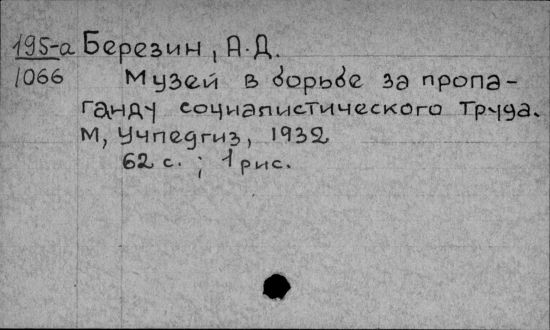 195-а Березин, А.Д.
1066 Музей в борьбе за пропа-
ганду социалистического труда.
М, Учпедгиз, 1932
62 с. ; 1 рис.